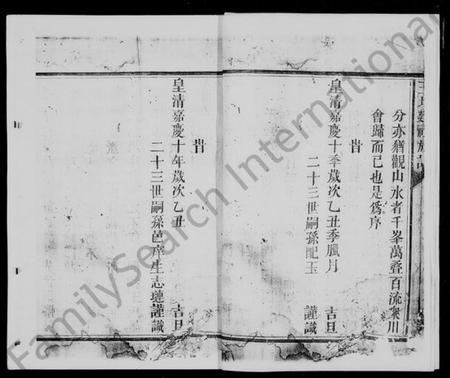 分亦猶觀山水者千峯萬叠百流衆川
會歸而已也是爲序
旹
皇清嘉慶十季歲次乙丑季風月 吉旦
二十三世嗣孫配玉 謹識
旹
皇清嘉慶十年歲次乙丑 吉旦
二十三世嗣孫邑庠生志璉謹識
FamilySearch International
FamilySearch International